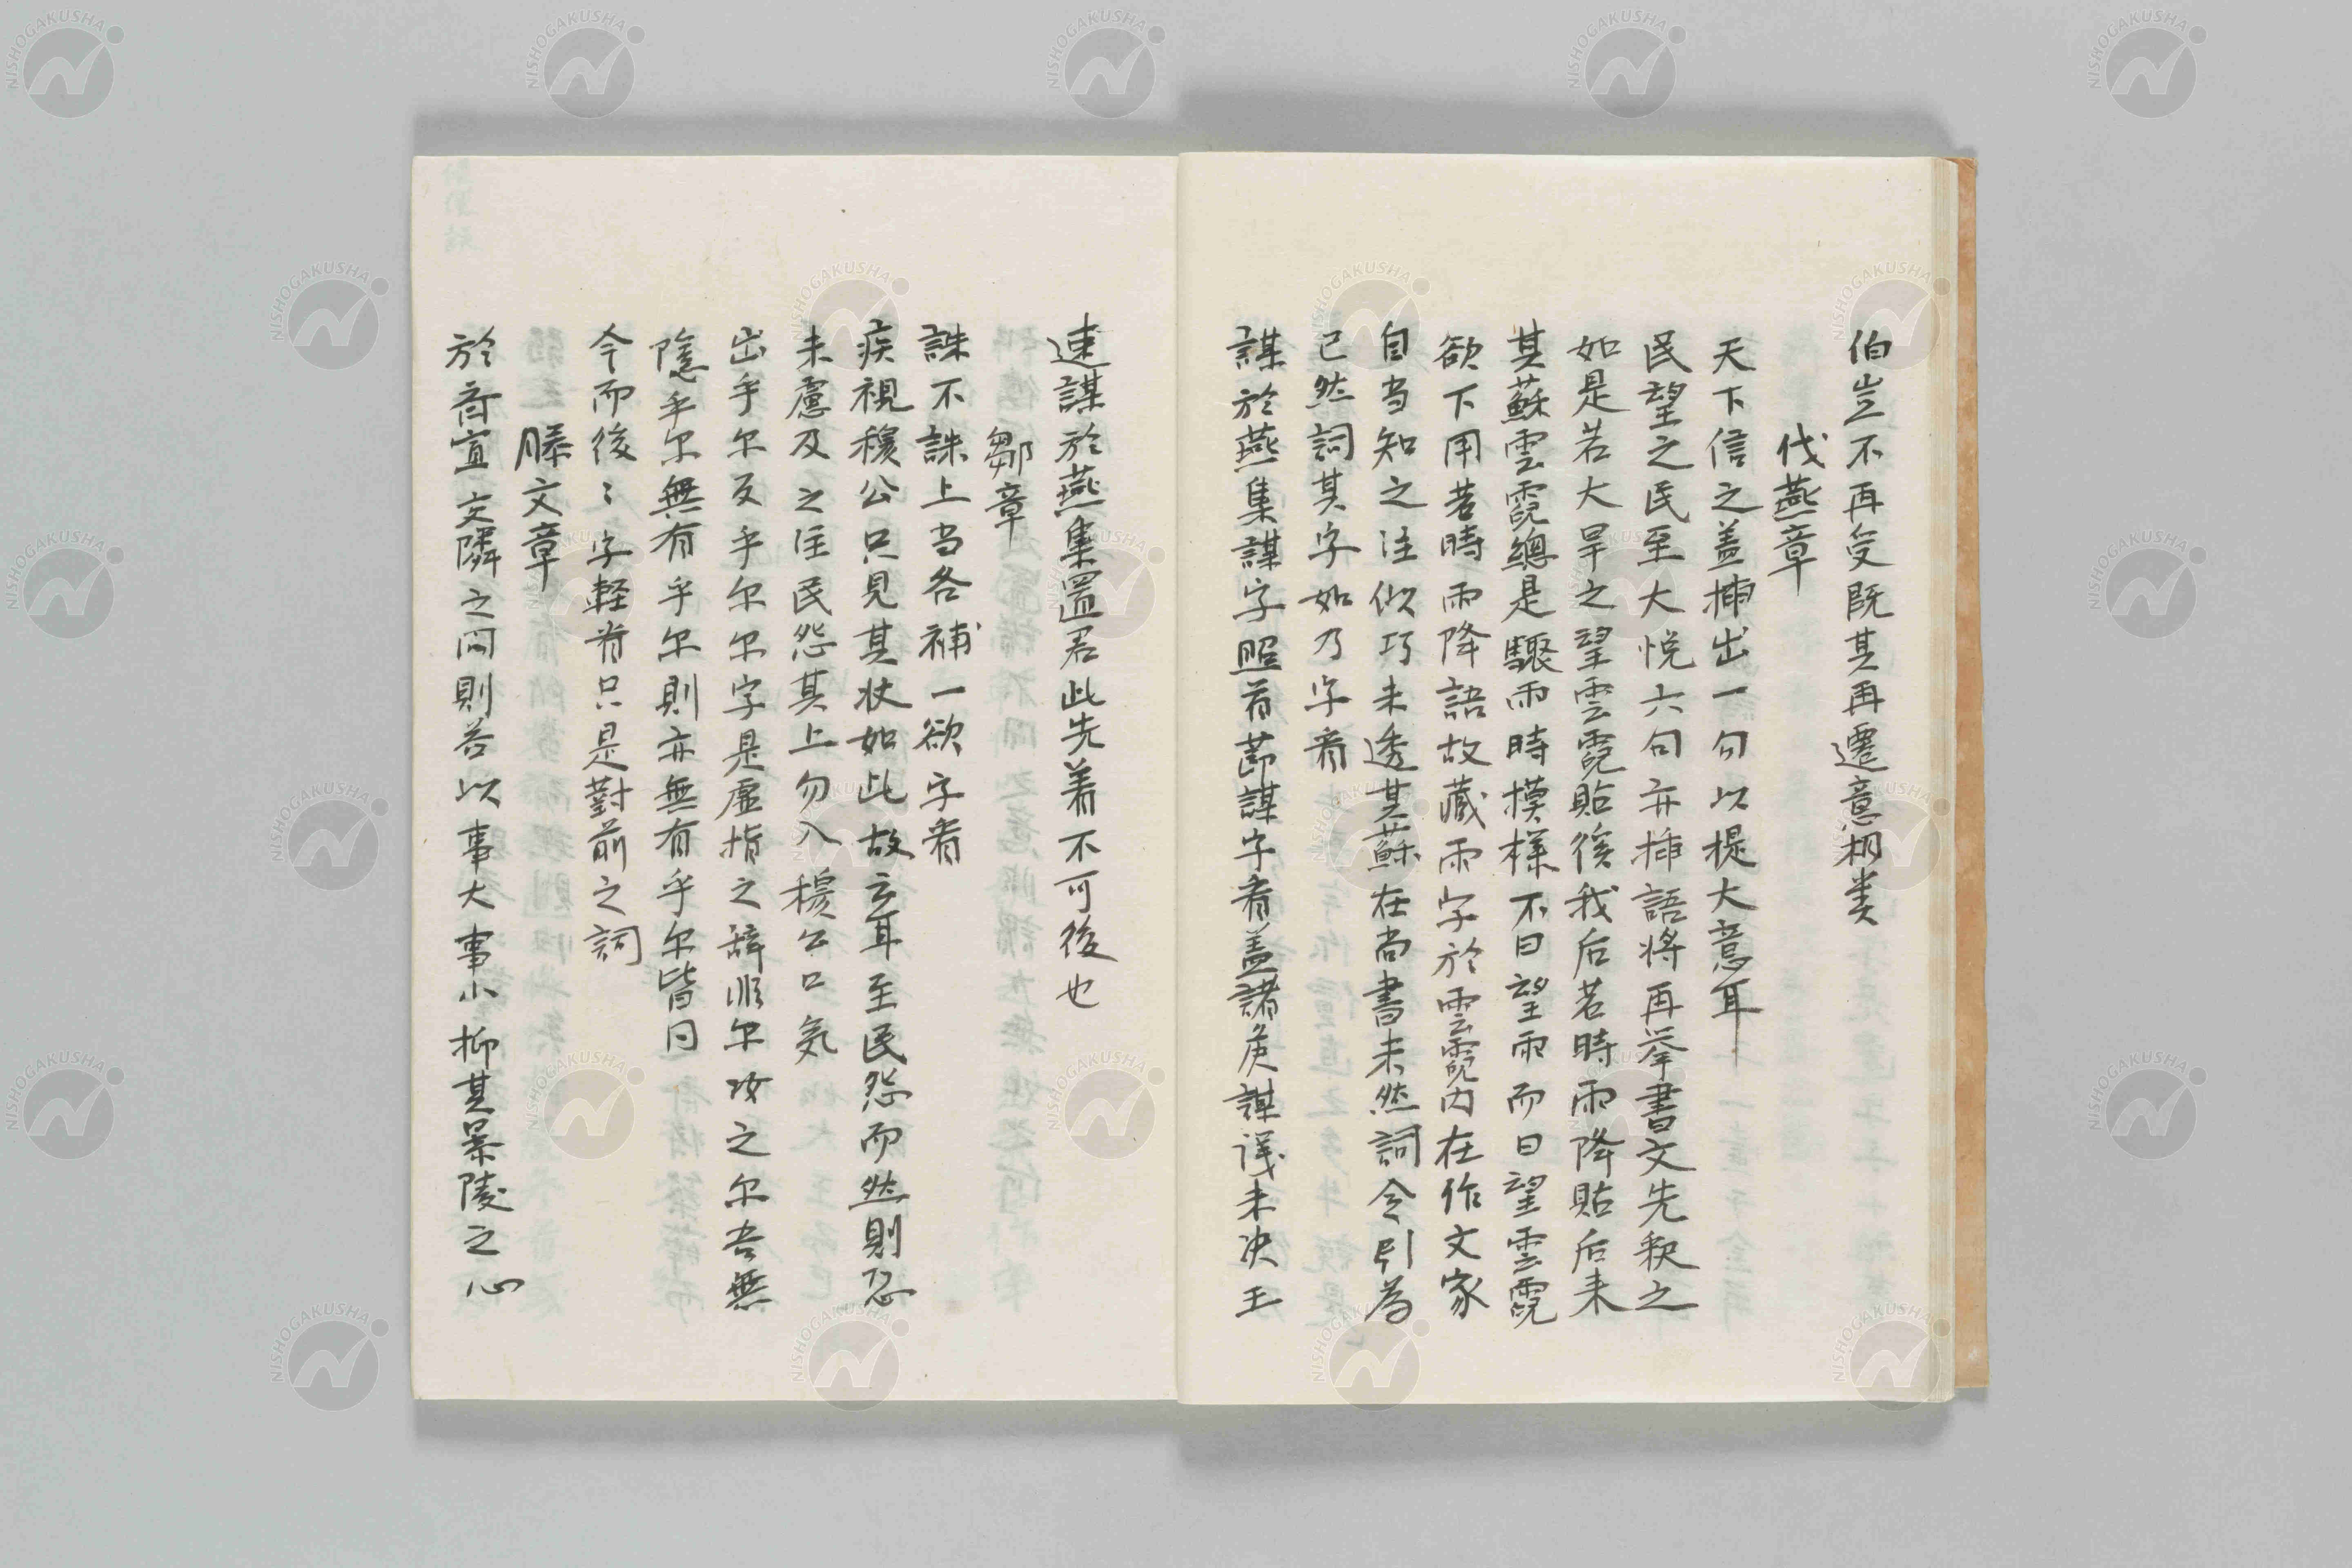 伯豈不再乎既其再遷意相类
伐燕章
天下信之盖挿出一句以提大意耳
民望之民至大悦六句亦挿語将再挙書文先釈之
如是若大旱之望雲霓貼後我后若時雨降貼后来
其蘇雲霓總是驟雨時模様不曰望雨而曰望雲霓
欲下用若時雨降語故蔵雨字於雲霓内在作文家
自当知之注似巧未透其蘇在尚書未然詞今引為
已然詞其字如乃字看
謀於燕集謀字照首節謀字看盖諸侯謀议未决王
速謀於燕集置君此先着不可後也
鄒章
誅不誅上当各補一欲字看
疾視穆公只見其状如此故云耳至民怨而然則忍
未慮及之注民怨其上勿入穆公口気
出乎尔反乎尔尔字是虚指之辞順尔攻之尔吾無
隠乎尔無有乎尔則亦無有乎尔皆同
今而後〻字軽看只是對前之詞
滕文章
於斉宣交隣之问則答以事大事小抑其暴陵之心
NISHOGAKUSHA